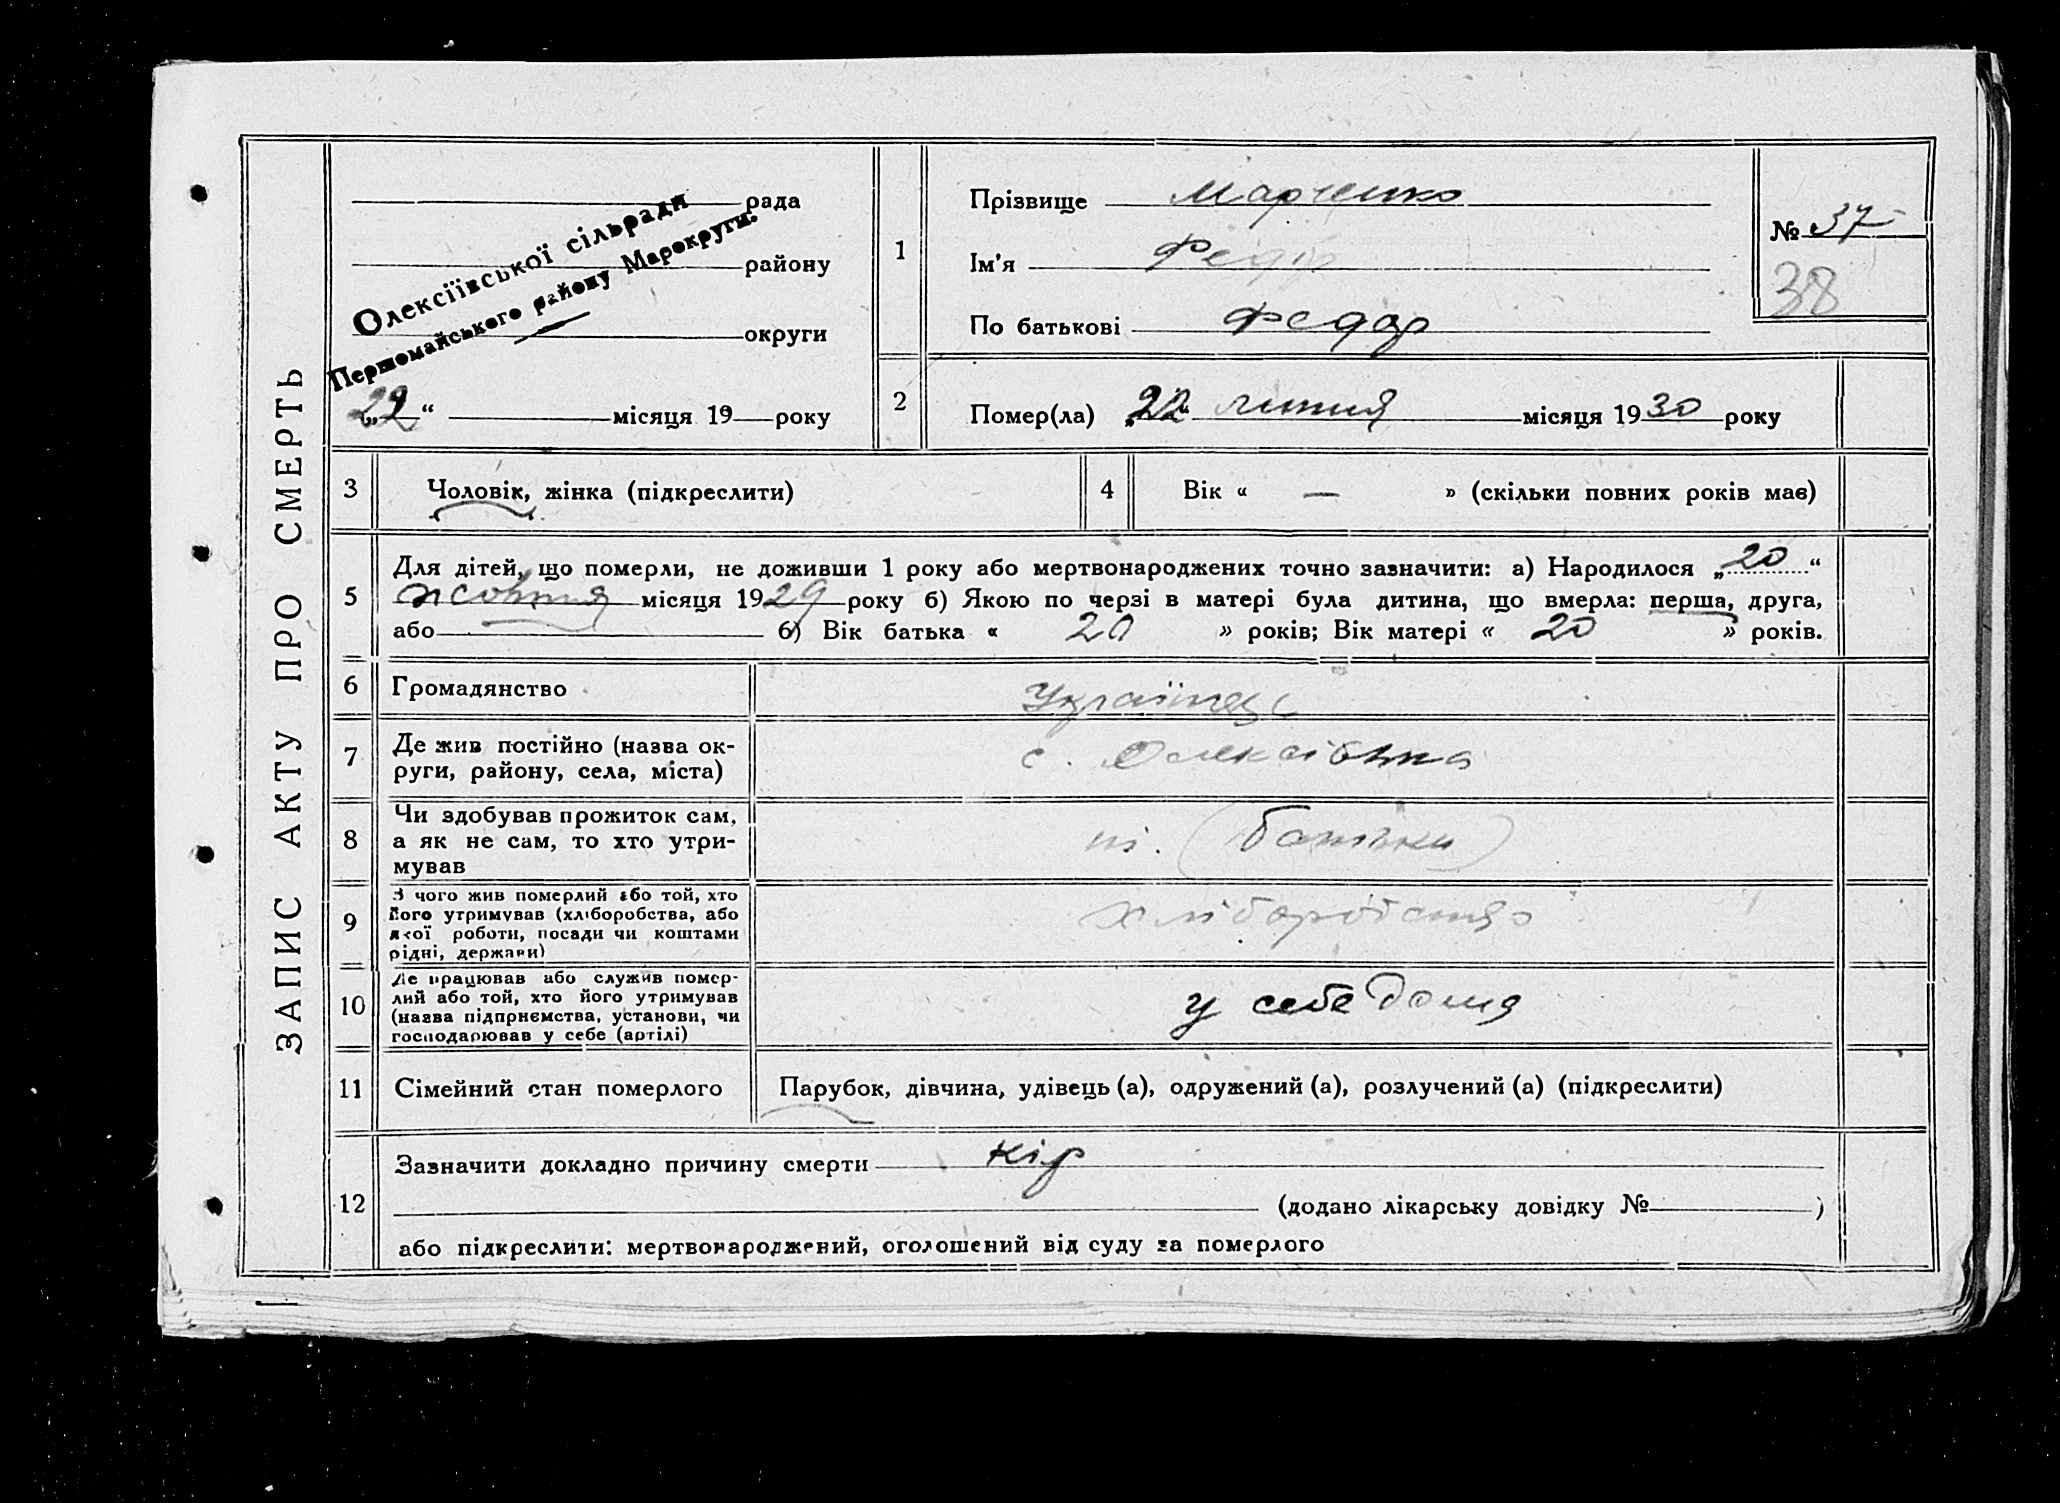 ЗАПИС АКТУ ПРО СМЕРТЬ
рада
району
округи
Олексіївської сільради
Першомайського району Марокруги.
„22“ місяця 19 року
1
Прізвище Марченко
Ім'я Федір
По батькові Федор
№ 37
38
2
Помер(ла) „22“ липня місяця 1930 року
3 Чоловік, жінка (підкреслити)
4 Вік « — » (скільки повних років має)
5
Для дітей, що померли, не доживши 1 року або мертвонароджених точно зазначити: а) Народилося „20“
жовтня місяця 1929 року б) Якою по черзі в матері була дитина, що вмерла: перша, друга,
або б) Вік батька « 20 » років; Вік матері « 20 » років.
6 Громадянство Українець
7
Де жив постійно (назва ок-
руги, району, села, міста)
с. Олексіївка
8
Чи здобував прожиток сам,
а як не сам, то хто утри-
мував
ні. (батьки)
9
З чого жив померлий або той, хто
його утримував (хліборобства, або
якої роботи, посади чи коштами
рідні, держави)
хліборобства
10
Де працював або служив помер-
лий або той, хто його утримував
(назва підприємства, установи, чи
господарював у себе (артілі)
у себе дома
11 Сімейний стан померлого Парубок, дівчина, удівець (а), одружений (а), розлучений (а) (підкреслити)
12
Зазначити докладно причину смерти кір
(додано лікарську довідку № )
або підкреслити: мертвонароджений, оголошений від суду за померлого